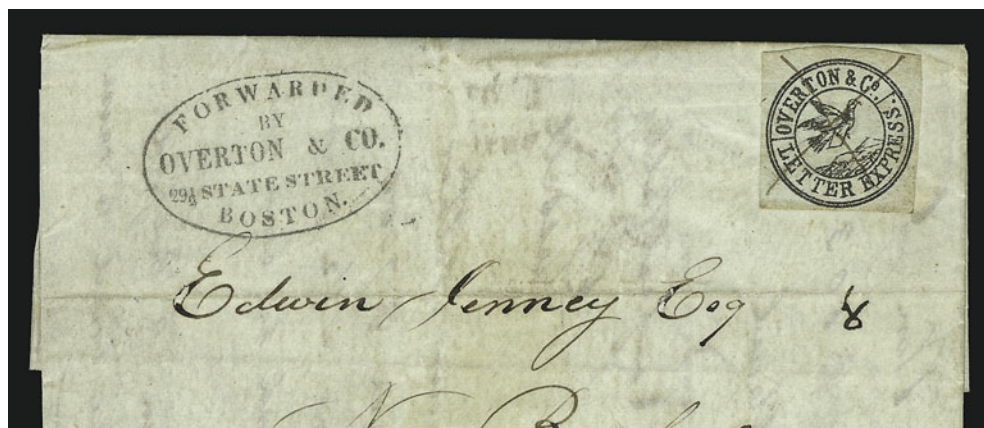 FORWARDED
BY
OVERTON & CO.
29½ STATE STREET
BOSTON.
OVERTON & Co.
LETTER EXPRESS.
Edwin Jenney Esq 8